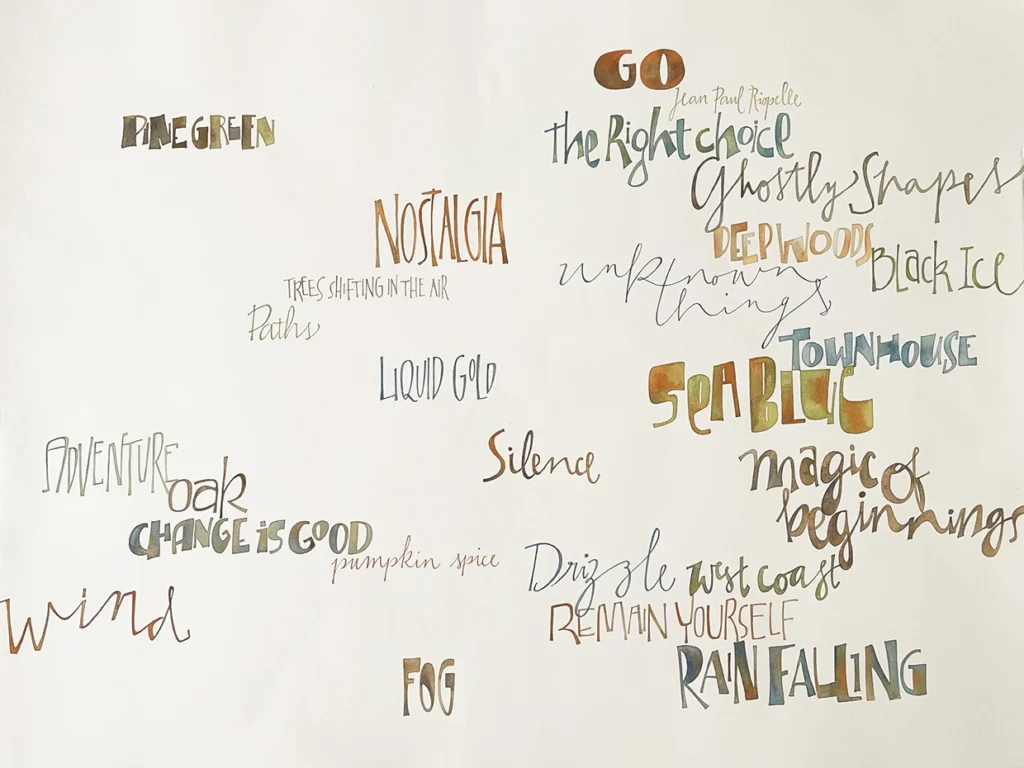 GO
Jean Paul Riopelle
PINE GREEN
the Right choice
Ghostly Shapes
NOSTALGIA
DEEP WOODS
Black Ice
unknown
things
TREES SHIFTING IN THE AIR
Paths
TOWNHOUSE
LIQUID GOLD
SEA BLUE
ADVENTURE
Silence
magic of
beginnings
oak
CHANGE iS GOOD
pumpkin spice
Drizzle
west coast
wind
REMAIN YOURSELF
RAIN FALLING
FOG